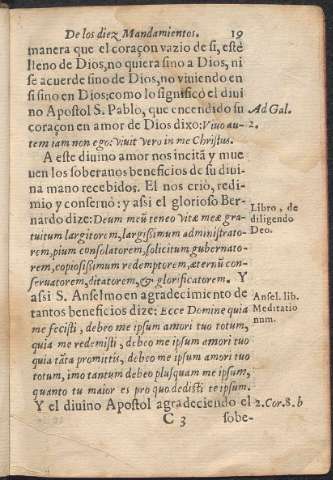 De los diez Mandamientos. 19
manera que el coraçon vazio de si, estè
lleno de Dios, no quiera sino a Dios, ni
se acuerde sino de Dios, no viuiendo en
si sino en Dios: como lo significò el diui
no Apostol S. Pablo, que encendido su
coraçon en amor de Dios dixo: Viuo au-
tem iam non ego: viuit vero in me Christus.
Ad Gal.
2.
A este diuino amor nos incitã y mue
uen los soberanos beneficios de su diui
na mano recebidos. El nos criò, redi-
mio y conseruò: y assi el glorioso Ber-
nardo dize: Deum meũ teneo vitæ meæ gra-
tuitum largitorem, largißimum administrato-
rem, pium consolatorem, solicitum gubernato-
rem, copiosißimum redemptorem, æternũ con-
seruatorem, ditatorem, & glorificatorem. Y
Libro, de
diligendo
Deo.
assi S. Anselmo en agradecimiento de
tantos beneficios dize: Ecce Domine quia
me fecisti, debeo me ipsum amori tuo totum,
quia me redemisti, debeo me ipsum amori tuo
quia tãta promittis, debeo me ipsum amori tuo
totum, imo tantum debeo plusquam me ipsum,
quanto tu maior es pro quo dedisti te ipsum.
Ansel. lib.
Meditatio
num.
Y el diuino Apostol agradeciendo el
2.Cor.8.b
C 3 sobe-